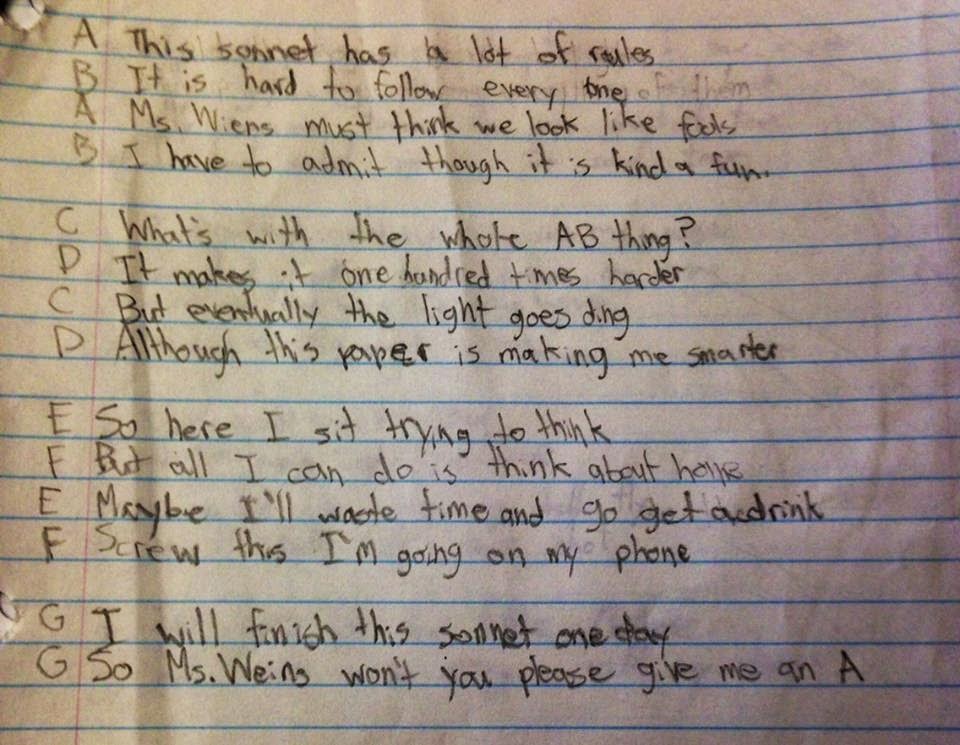 A This sonnet has a lot of rules
B It is hard to follow every one of them
A Ms. Wiens must think we look like fools
B I have to admit though it is kind a fun.
C What's with the whole AB thing?
D It makes it one hundred times harder
C But eventually the light goes ding
D Although this paper is making me smarter
E So here I sit trying to think
F But all I can do is think about home
E Maybe I'll waste time and go get a drink
F Screw this I'm going on my phone
G I will finish this sonnet one day
G So Ms. Weins won't you please give me an A